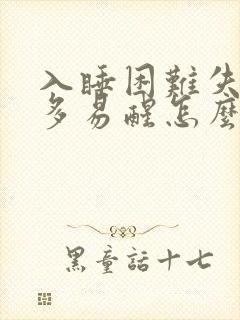 入睡困難失
多易醒怎麼
黑童話十七